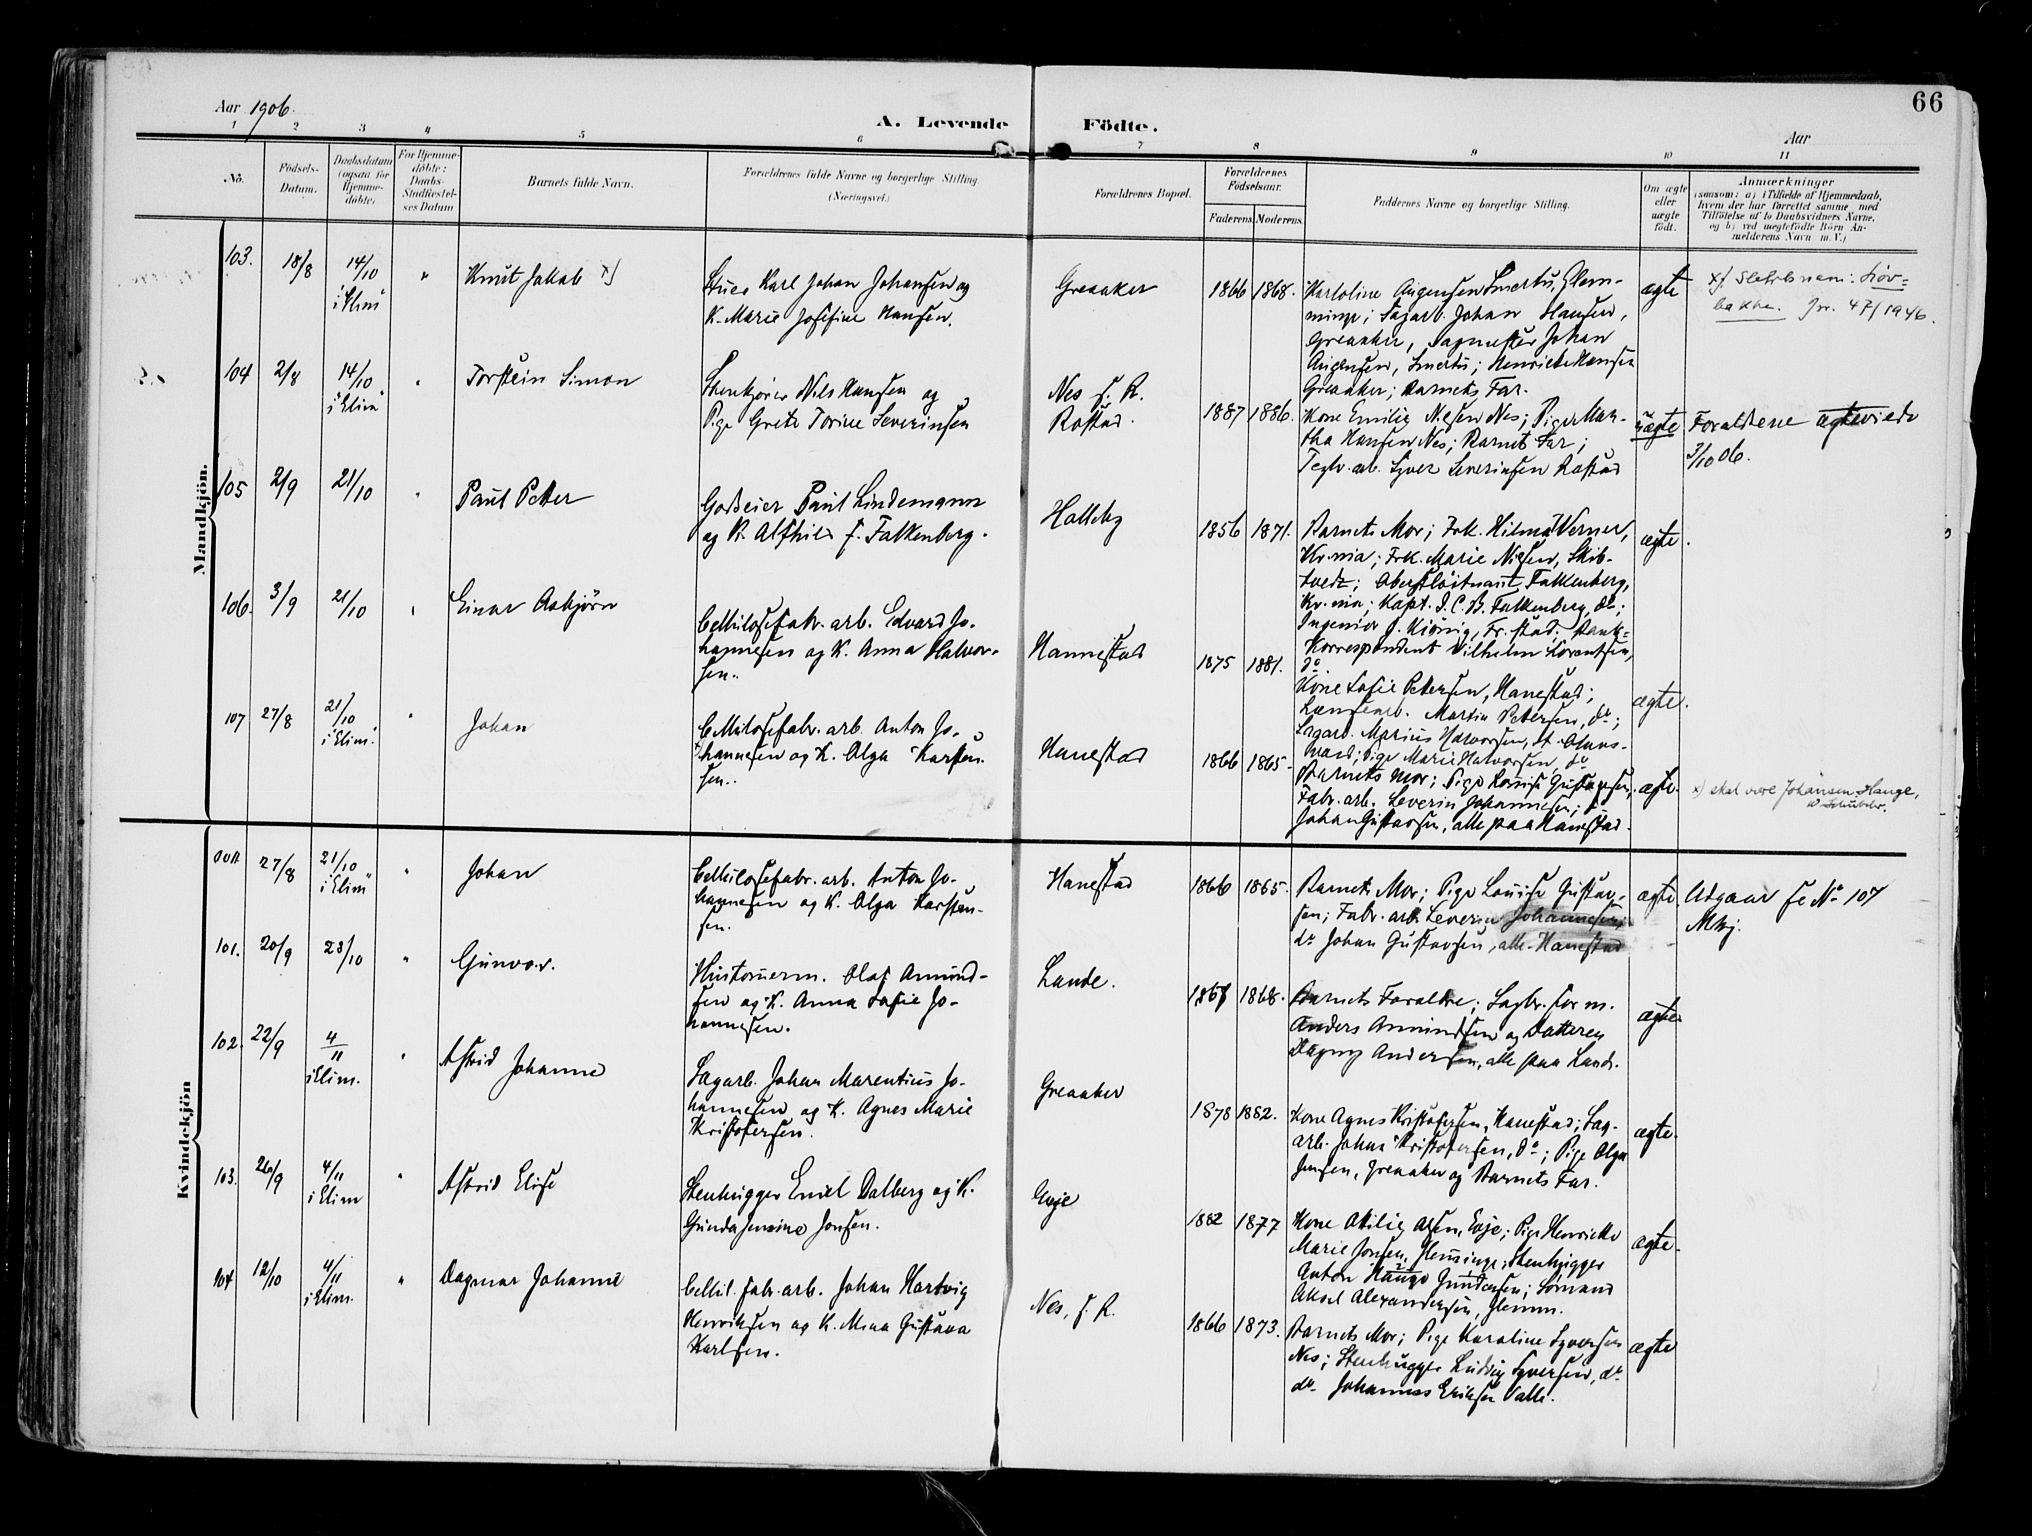 66
Aar 1906.
A. Levende Födte.
Aar
1 2 3 4 5 6 7 8 9 10 11
No.
Födsels-
Datum.
Daabsdatum
(ogsaa for
Hjemme-
döbte)
For Hjemme-
döbte:
Daabs-
Stadfæstel-
ses Datum
Barnets fulde Navn.
Forældrenes fulde Navne og borgerlige Stilling
(Næringsvei.)
Forældrenes Bopæl.
Forældrenes
Födselsaar.
Faderens. Moderens.
Faddernes Navne og borgerlige Stilling.
Om ægte
eller
uægte
födt.
Anmærkninger
(saasom: a) i Tilfælde af Hjemmedaab,
hvem der har forrettet samme, med
Tilföielse af to Daabsvidners Navne,
og b) ved uægtefödte Börn An-
melderens Navn m. V.)
Mandkjön.
103. 18/8 14/10
i "Elim"
" Knut Jakob x)
Karl Johan Johansen og
K. Marie Josefine Hansen.
Greaaker
1866 1868.
Johan Hansen,
Greaaker, Sagmester Johan
Greaaker; Barnets Far.
ægte
47/1946.
104 2/8 14/10
i "Elim"
" Torstein Simon
Nils Hansen og
Pige Grete Torine Severinsen
Nes f. R.
Rostad.
1887 1886.
Kone Emilie Nilsen Nes; Pige Mar-
tha Hansen Nes; Barnets Far;
Teglv. arb. Syver Severinsen Rostad
uægte
Forældrene ægteviede
3/10 06.
105 2/9 21/10
" Paul Petter
Godseier Paul Lindemann
og K. Alfhild f. Falkenberg.
Halleby
1856 1871.
Barnets Mor; Frk. Hilma Werner,
Kr.nia; Frk. Marie Nilsen, Skib-
tvedt; Oberstløitnant Falkenberg,
Kr.nia; Kapt. I. C. B. Falkenberg, do;
Ingeniør J. Fr.stad; Bank-
Korrespondent Vilhelm Lorentsen,
do
ægte.
106. 3/9 21/10
" Einar Asbjörn
Cellulosefabr. arb. Edvard Jo-
hannesen og K. Anna Halvor-
sen.
Hannestad
1875 1881.
Kone Sofie Petersen, Hanestad;
Martin Petersen, do;
Sagarb. Marius Halvorsen, St. Olavs-
vold; Pige Marie Halvorsen, do
ægte.
107 27/8 21/10
i "Elim".
" Johan
Cellulosefabr. arb. Anton Jo-
hannesen og K. Olga Karsten-
sen.
Hanestad
1866 1865.
Barnets Mor; Pige Lovise Gustavsen,
Fabr. arb. Severin Johannesen;
Johan Gustavsen, alle paa Hanestad.
ægte.
x) skal være Johansen Hauge,
Kvindekjön
27/8 21/10
i "Elim"
" Johan
Cellulosefabr. arb. Anton Jo-
hannesen og K. Olga Karsten-
sen.
Hanestad
1866 1865.
Barnets Mor; Pige Louise Gustav-
sen; Fabr. arb. Severin Johannesen,
do Johan Gustavsen, alle Hanestad
ægte
Udgaar se No 107
Mkj.
101. 20/9 28/10
" Gunvor.
Hustømerm. Olaf Amund-
sen og K. Anna Sofie Jo-
hannesen.
Lande.
1867 1868.
Barnets Forældre; Sagbr. form.
Anders Amundsen og Datteren
Dagny Andersen, alle paa Lande.
ægte
102. 22/9 4/11
i Elim.
" Astrid Johanne
Sagarb. Johan Marentius Jo-
hannesen og K. Agnes Marie
Kristofersen.
Greaaker
1878 1882.
Kone Agnes Kristofersen, Hanestad; Sag-
arb. Johan Kristofersen, do; Pige Olga
Jensen, Greaaker og Barnets Far.
ægte.
103. 26/9 4/11
i Elim
" Astrid Elise
Stenhugger Emil Dalberg og K.
Gunda Jensine Jonsen.
Evje
1882 1877
Kone Otilie Olsen, Evje; Pige Henrikke
Marie Jonsen, Glemminge; Stenhugger
Anton Hauge Gundersen; Sømand
Aksel Alexandersen, Glemm.
ægte.
104 12/10 4/11
i Elim.
" Dagmar Johanne
Cellul. fabr. arb. Johan Hartvig
Henriksen og K. Mina Gustava
Karlsen.
Nes, f. R.
1866 1873.
Barnets Mor; Pige Karoline Syversen
Nes; Stenhugger Ludvig Syversen, do
do Johannes Eriksen Valle.
ægte